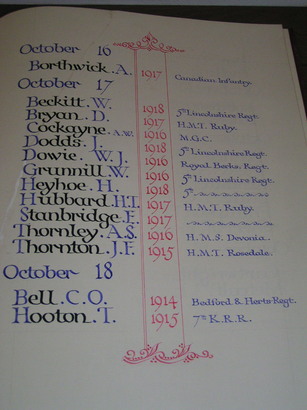 October 16
Borthwick. A. 1917 Canadian Infantry.
October 17
Beckitt. W. 1918 5th Lincolnshire Regt.
Bryan. D. 1917 H.M.T. Ruby.
Cockayne. A.W. 1916 M.G.C.
Dodds. J. 1918 5th Lincolnshire Regt.
Dowie. W. J. 1916 Royal Berks. Regt.
Grunnill. W. 1916 5th Lincolnshire Regt.
Heyhoe. H. 1918 5th
Hubbard. H.T. 1917 H.M.T. Ruby.
Stanbridge. E. 1917
Thornley. A.S. 1916 H.M.S. Devonia.
Thornton. J.F. 1915 H.M.T. Rosedale.
October 18
Bell. C.O. 1914 Bedford & Herts Regt.
Hooton. T. 1915 7th K.R.R.